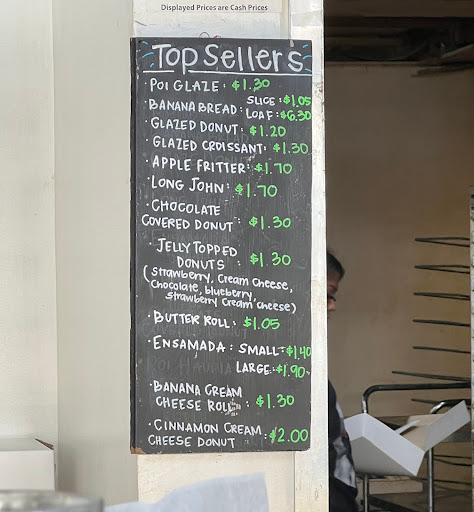 Displayed Prices are Cash Prices
Top Sellers
· POI GLAZE : $1.30
· BANANA BREAD : SLICE : $1.05
LOAF : $6.30
· GLAZED DONUT : $1.20
GLAZED CROISSANT : $1.30
· APPLE FRITTER : $1.70
· LONG JOHN : $1.70
· CHOCOLATE
COVERED DONUT : $1.30
· JELLY TOPPED
DONUTS : $1.30
(Strawberry, Cream Cheese,
Chocolate, blueberry,
Strawberry Cream Cheese)
· BUTTER ROLL : $1.05
· ENSAMADA : SMALL : $1.40
LARGE : $1.90
· BANANA CREAM
CHEESE ROLL : $1.30
· CINNAMON CREAM
CHEESE DONUT : $2.00